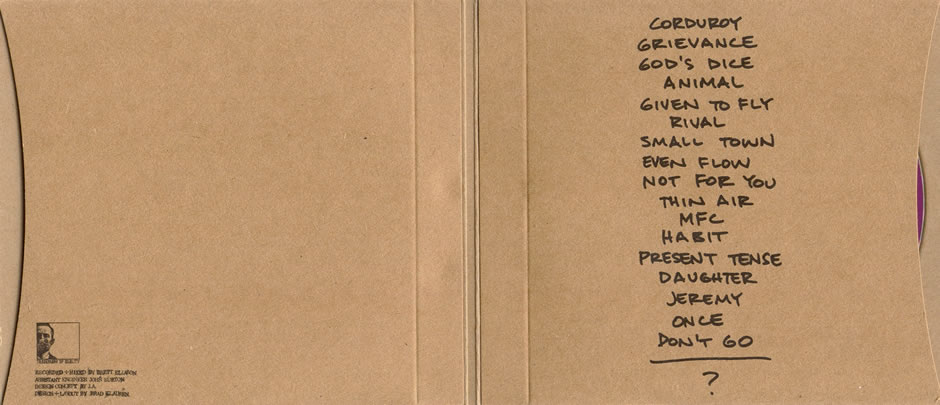 CORDUROY
GRIEVANCE
GOD'S DICE
ANIMAL
GIVEN TO FLY
RIVAL
SMALL TOWN
EVEN FLOW
NOT FOR YOU
THIN AIR
MFC
HABIT
PRESENT TENSE
DAUGHTER
JEREMY
ONCE
DON'T GO
?
RECORDED + MIXED BY BRETT ELIASON
ASSISTANT ENGINEER JOHN BURTON
DESIGN CONCEPT BY J.A.
DESIGN + LAYOUT BY BRAD KLAUSEN